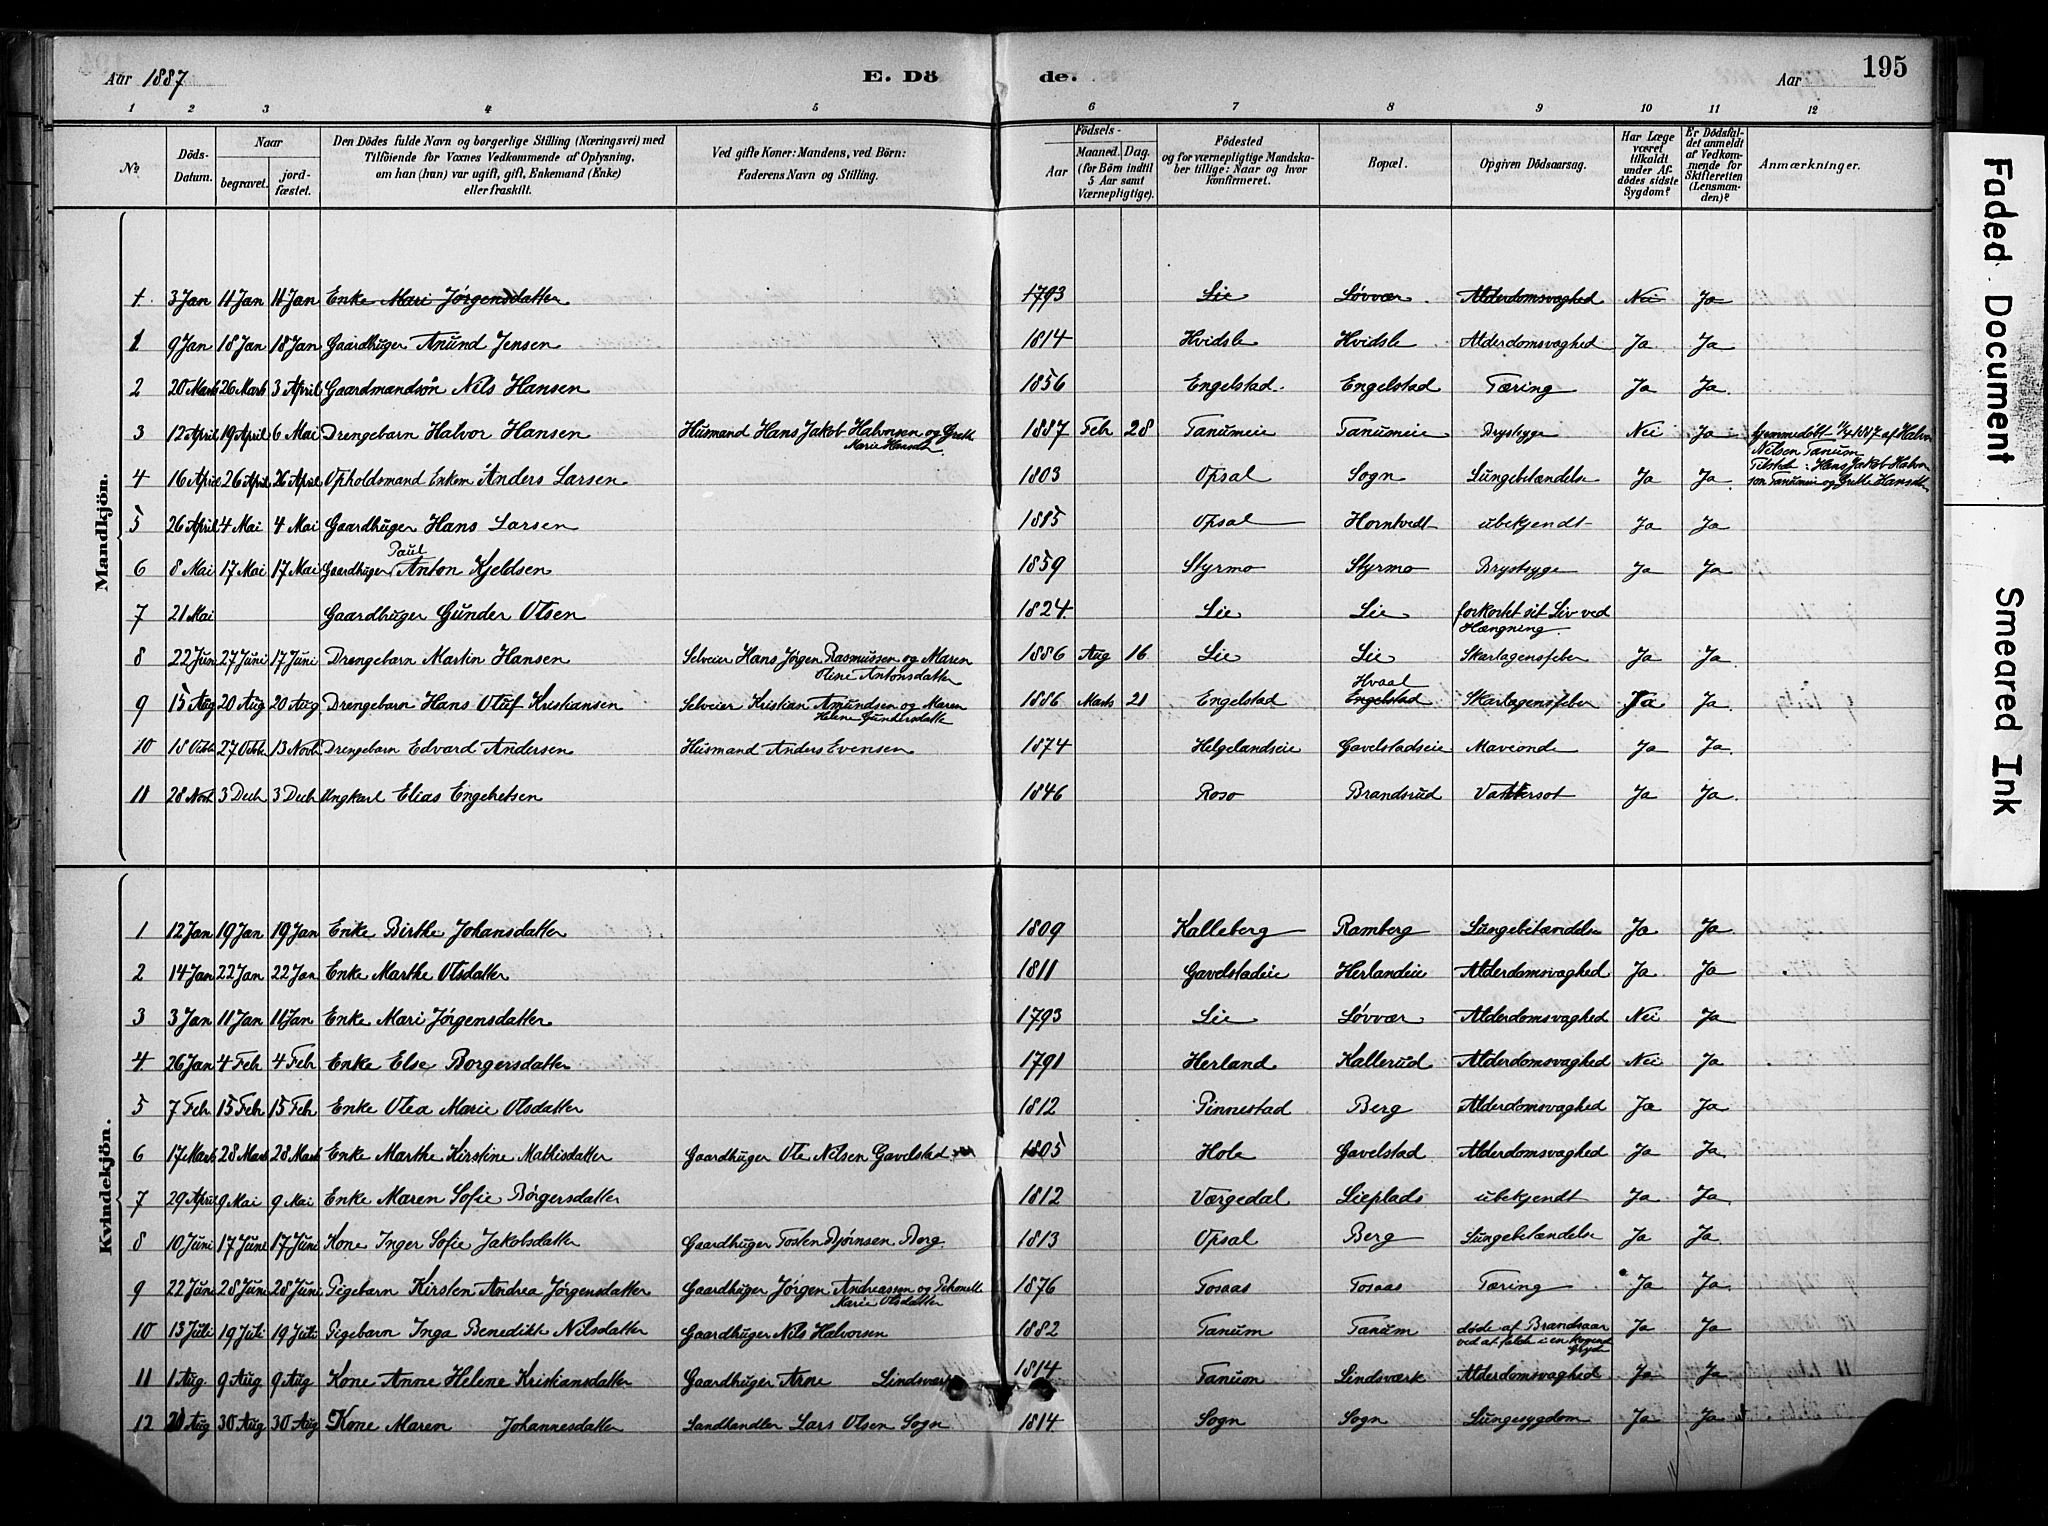 Aar 1887 E. Dö de. Aar 195
1 2 3 4 5 6 7 8 9 10 11 12
No
Döds-Datum.
Naar
begravet.
jord-fæstet.
Den Dödes fulde Navn og borgerlige Stilling (Næringsvei) med
Tilföiende for Voxnes Vedkommende af Oplysning,
om han (hun) var ugift, gift, Enkemand (Enke)
eller fraskilt.
Ved gifte Koner: Mandens, ved Börn:
Faderens Navn og Stilling.
Födsels-
Aar
Maaned. Dag.
(for Börn indtil
5 Aar samt
Værnepligtige).
Födested
og for værnepligtige Mandska-
ber tillige: Naar og hvor
konfirmeret.
Bopæl.
Opgiven Dödsaarsag.
Har Læge
været
tilkaldt
under Af-
dödes sidste
Sygdom?
Er Dödsfal-
det anmeldt
af Vedkom-
mende for
Skifteretten
(Lensman-
den)?
Anmærkninger.
Mandkjön.
1. 3 Jan 11 Jan 11 Jan Enke Mari Jørgensdatter 1793 Lie Løvvær Alderdomsvaghed Nei Ja
1 9 Jan 18 Jan 18 Jan Gaardbruger Anund Jensen 1814 Hvidsle Hvidsle Alderdomsvaghed Ja Ja
2 20 Marts 26 Marts 3 April Gaardmandsøn Nils Hansen 1856 Engelstad Engelstad Tæring Ja Ja
3 12 April 19 April 6 Mai Drengebarn Halvor Hansen Husmand Hans Jakob Halvorsen og Grethe Marie Hansdt. 1887 Feb 28 Tanumeie Tanumeie Brystsyge Nei Ja Hjemmedøbt 1887 af Halvor
Nilsen Tanum
4 16 April 26 April 26 April Opholdsmand Enkem Anders Larsen 1803 Opsal Sogn Lungebetændelse Ja Ja Tilsted: Hans Jakob Halvorsen Tanumeie og Grethe Hansdtr
5 26 April 4 Mai 4 Mai Gaardbruger Hans Larsen 1815 Opsal Horntvedt ubekjendt Ja Ja
6 8 Mai 17 Mai 17 Mai Gaardbruger Paul Anton Kjeldsen 1859 Styrmo Styrmo Brystsyge Ja Ja
7 21 Mai Gaardbruger Gunder Olsen 1824 Lie Lie forkortet sit Liv ved Hængning.
8 22 Juni 27 Juni 17 Juni Drengebarn Martin Hansen Selveier Hans Jørgen Rasmussen og Maren Oline Antonsdatter 1886 Aug 16 Lie Lie Skarlagensfeber Ja Ja
9 15 Aug 20 Aug 20 Aug Drengebarn Hans Oluf Kristiansen Selveier Kristian Amundsen og Maren Helene Gundersdatter 1886 Marts 21 Engelstad Hvaal Engelstad Skarlagensfeber Ja Ja
10 18 Octb 27 Octb 13 Novb Drengebarn Edvard Andersen Husmand Anders Evensen 1874 Helgelandseie Gavelstadseie Maveonde Ja Ja
11 28 Novb 3 Decb 3 Decb Ungkarl Elias Engebretsen 1846 Roso Brandsrud Vattersot Ja Ja
Kvindekjön.
1 12 Jan 19 Jan 19 Jan Enke Birthe Johansdatter 1809 Kalleberg Ramberg Lungebetændelse Ja Ja
2 14 Jan 22 Jan 22 Jan Enke Marthe Olsdatter 1811 Gavelstadeie Herlandeie Alderdomsvaghed Ja Ja
3 3 Jan 11 Jan 11 Jan Enke Mari Jørgensdatter 1793 Lie Løvvær Alderdomsvaghed Nei Ja
4 26 Jan 4 Feb 4 Feb Enke Else Borgersdatter 1791 Herland Kallerud Alderdomsvaghed Nei Ja
5 7 Feb 15 Feb 15 Feb Enke Olea Marie Olsdatter 1812 Pinnestad Berg Alderdomsvaghed Ja Ja
6 17 Marts 28 Marts 28 Marts Enke Marthe Kirstine Mathisdatter Gaardbruger Ole Nilsen Gavelstad 1805 Hole Gavelstad Alderdomsvaghed Ja Ja
7 29 April 9 Mai 9 Mai Enke Maren Sofie Børgersdatter 1812 Værgedal Lieplads ubekjendt Ja Ja
8 10 Juni 17 Juni 17 Juni Kone Inger Sofie Jakobsdatter Gaardbruger Tosten Bjørnsen Berg 1813 Opsal Berg Lungebetændelse Ja Ja
9 22 Juni 28 Juni 28 Juni Pigebarn Kirsten Andrea Jørgensdatter Gaardbruger Jørgen Andreassen og Petronelle Marie Olsdatter 1876 Tosaas Tosaas Tæring Ja Ja
10 13 Juli 19 Juli 19 Juli Pigebarn Inga Benedikte Nilsdatter Gaardbruger Nils Halvorsen 1882 Tanum Tanum døde af Brandsaar ved at falde i en kogende Gryde Ja Ja
11 1 Aug 9 Aug 9 Aug Kone Anne Helene Kristiansdatter Gaardbruger Arne Lindsværk 1814 Tanum Lindsværk Alderdomsvaghed Ja Ja
12 21 Aug 30 Aug 30 Aug Kone Maren Johannesdatter Landhandler Lars Olsen Sogn 1814 Sogn Sogn Lungesygdom Ja Ja
Faded Document
Smeared Ink